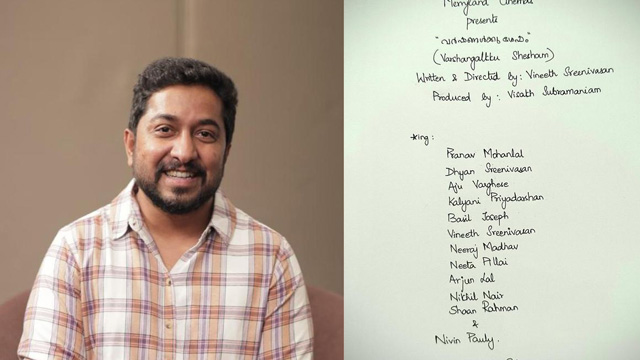 Merryland Cinemas
presents
"വർഷങ്ങൾക്കു ശേഷം"
(Varshangalkku Shesham)
Written & Directed by : Vineeth Sreenivasan
Produced by : Visakh Subramaniam
*ring :
Pranav Mohanlal
Dhyan Sreenivasan
Aju Varghese
Kalyani Priyadarshan
Basil Joseph
Vineeth Sreenivasan
Neeraj Madhav
Neeta Pillai
Arjun Lal
Nikhil Nair
Shaan Rahman
&
Nivin Pauly.